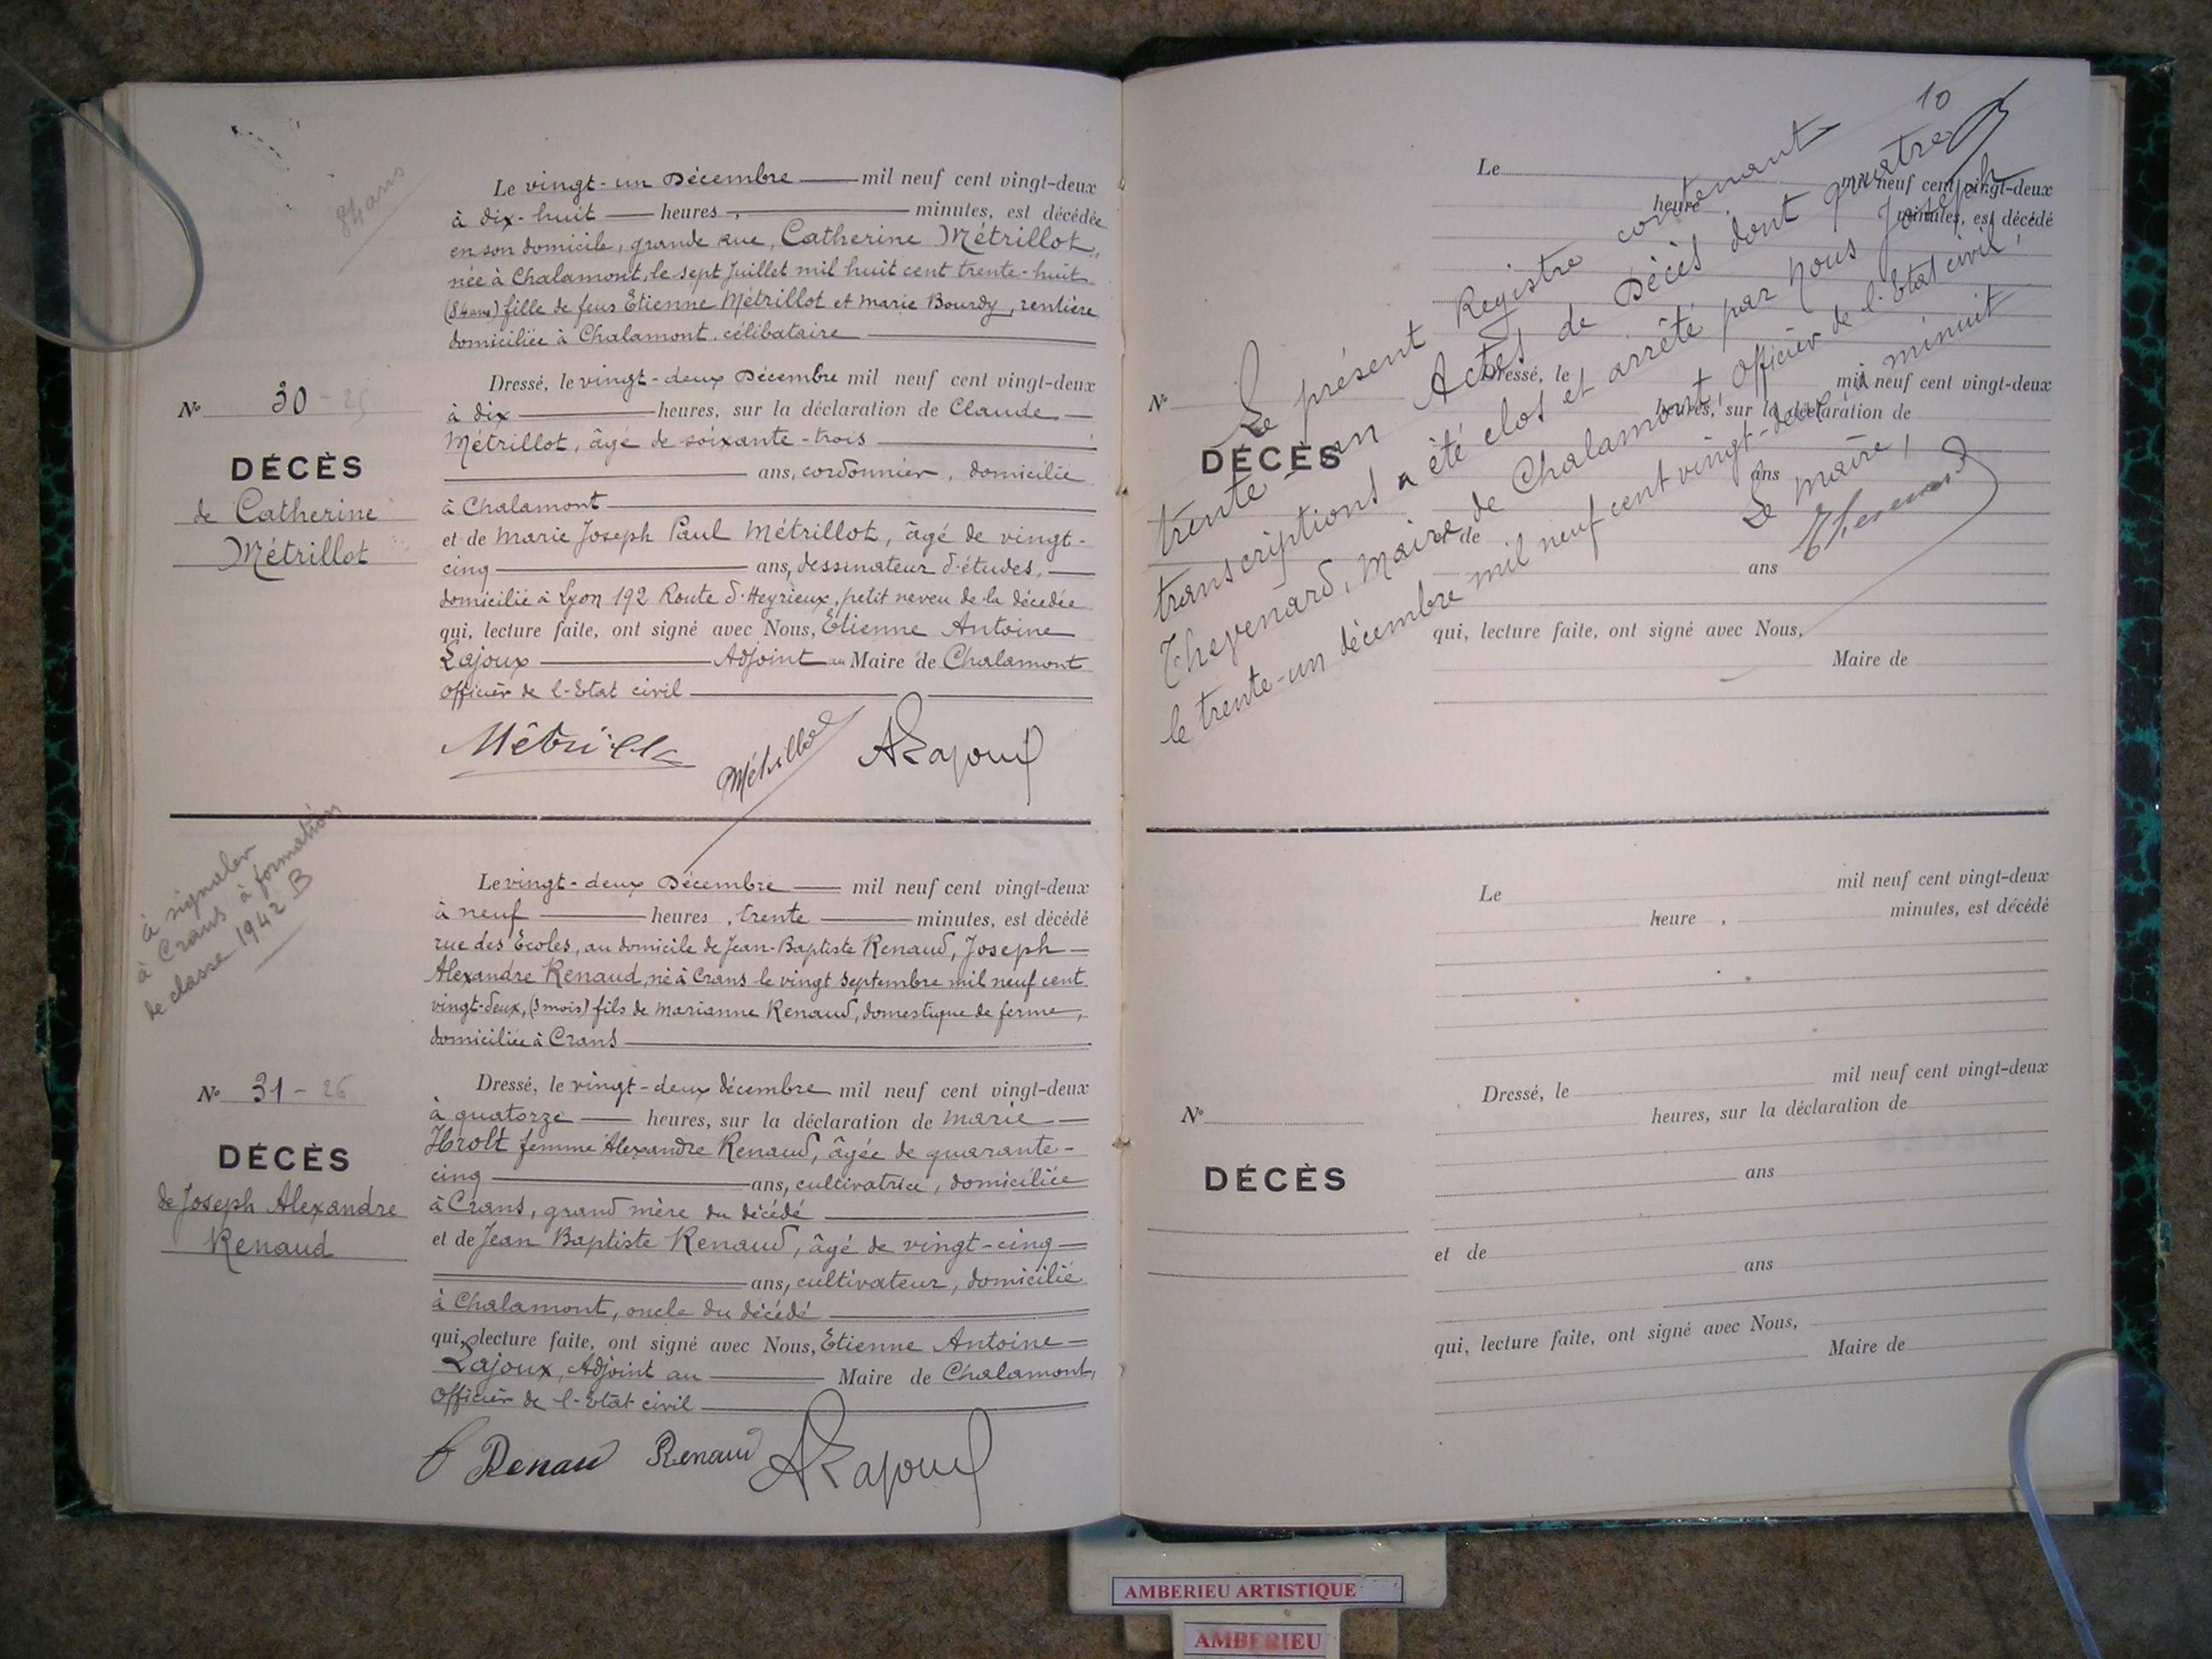 84 ans
Le vingt-un Décembre mil neuf cent vingt-deux
à dix-huit heures, minutes, est décédée
en son domicile, grande rue, Catherine Métrillot,
née à Chalamont, le sept Juillet mil huit cent trente-huit
(84 ans) fille de feus Etienne Métrillot et marie Bourdy, rentière
domiciliée à Chalamont. célibataire
Nº 30 - 25
DÉCÈS
de Catherine
Métrillot
Dressé, le vingt-deux Décembre mil neuf cent vingt-deux
à dix heures, sur la déclaration de Claude
Métrillot, âgé de soixante-trois
ans, cordonnier, domicilié
à Chalamont
et de Marie Joseph Paul Métrillot, âgé de vingt-
cinq ans, dessinateur d'études,
domicilié à Lyon 192 Route d'Heyrieux, petit neveu de la décédée
qui, lecture faite, ont signé avec Nous, Etienne Antoine
Lajoux Adjoint au Maire de Chalamont
Officier de l'Etat civil
Métrillot Métrillot ALajoux
à signaler
à Crans à formation
de classe 1942 B
Le vingt-deux Décembre mil neuf cent vingt-deux
à neuf heures, trente minutes, est décédé
rue des Ecoles, au domicile de Jean-Baptiste Renaud, Joseph
Alexandre Renaud, né à Crans le vingt septembre mil neuf cent
vingt-deux, (3 mois) fils de Marianne Renaud, domestique de ferme,
domiciliée à Crans
Nº 31 - 26
DÉCÈS
de Joseph Alexandre
Renaud
Dressé, le vingt-deux décembre mil neuf cent vingt-deux
à quatorze heures, sur la déclaration de Marie
femme Alexandre Renaud, âgée de quarante-
cinq ans, cultivatrice, domiciliée
à Crans, grand mère du décédé
et de Jean Baptiste Renaud, âgé de vingt-cinq
ans, cultivateur, domicilié
à Chalamont, oncle du décédé
qui, lecture faite, ont signé avec Nous, Etienne Antoine
Lajoux, Adjoint au Maire de Chalamont,
Officier de l'Etat civil
Renaud Renaud ALajoux
10
Le présent Registre contenant
trente-un Actes de Décès dont quatre
transcriptions a été clos et arrêté par Nous Joseph
Thevenard, Maire de Chalamont, Officier de l'Etat civil,
le trente-un décembre mil neuf cent vingt-deux à minuit
Le Maire,
Thevenard
Le mil neuf cent vingt-deux
heure minutes, est décédé
Nº
DÉCÈS
Dressé, le mil neuf cent vingt-deux
heures, sur la déclaration de
ans
et de
ans
qui, lecture faite, ont signé avec Nous,
Maire de
Le mil neuf cent vingt-deux
heure , minutes, est décédé
Nº
DÉCÈS
Dressé, le mil neuf cent vingt-deux
heures, sur la déclaration de
ans
et de
ans
qui, lecture faite, ont signé avec Nous,
Maire de
AMBERIEU ARTISTIQUE
AMBERIEU